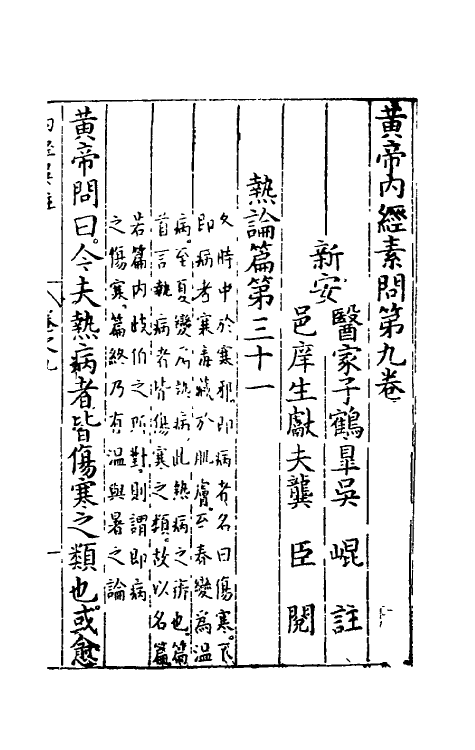 黃帝內經素問第九卷
新安
醫家子鶴臯吳 崐 註
邑庠生獻夫龔 臣 閱
熱論篇第三十一
冬時中於寒邪。即病者名曰傷寒。不
即病者寒毒藏於肌膚。至春變爲溫
病。至夏變爲熱病。此熱病之所也。篇
首言熱病者皆傷寒之類。故以名篇
若篇內岐伯之所對。則謂即病
之傷寒。篇終乃有溫與暑之論
黃帝問曰。今夫熱病者皆傷寒之類也。或愈
卷之九
一